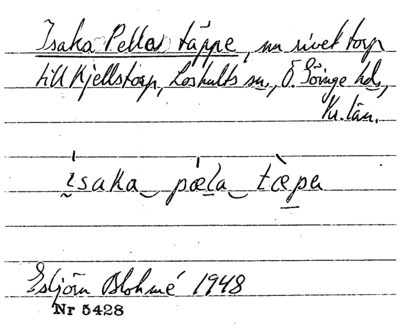 Isaka Pellas täppe, nu rivet torp
till Kjellstorp, Loshults sn., Ö. Göinge hd.,
Kr. län.
ìsaka‿ pæ̀la‿ tæ̀pa
Esbjörn Blohmé 1948
Nr 5428